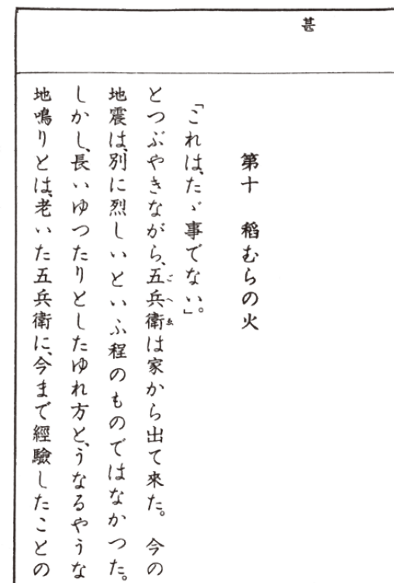 甚
第十　稻むらの火
「これは、たゞ事でない。」
とつぶやきながら、五兵衛は家から出て來た。今の
ごへゑ
地震は、別に烈しいといふ程のものではなかつた。
しかし、長いゆつたりとしたゆれ方と、うなるやうな
地鳴りとは、老いた五兵衛に、今まで經驗したことの